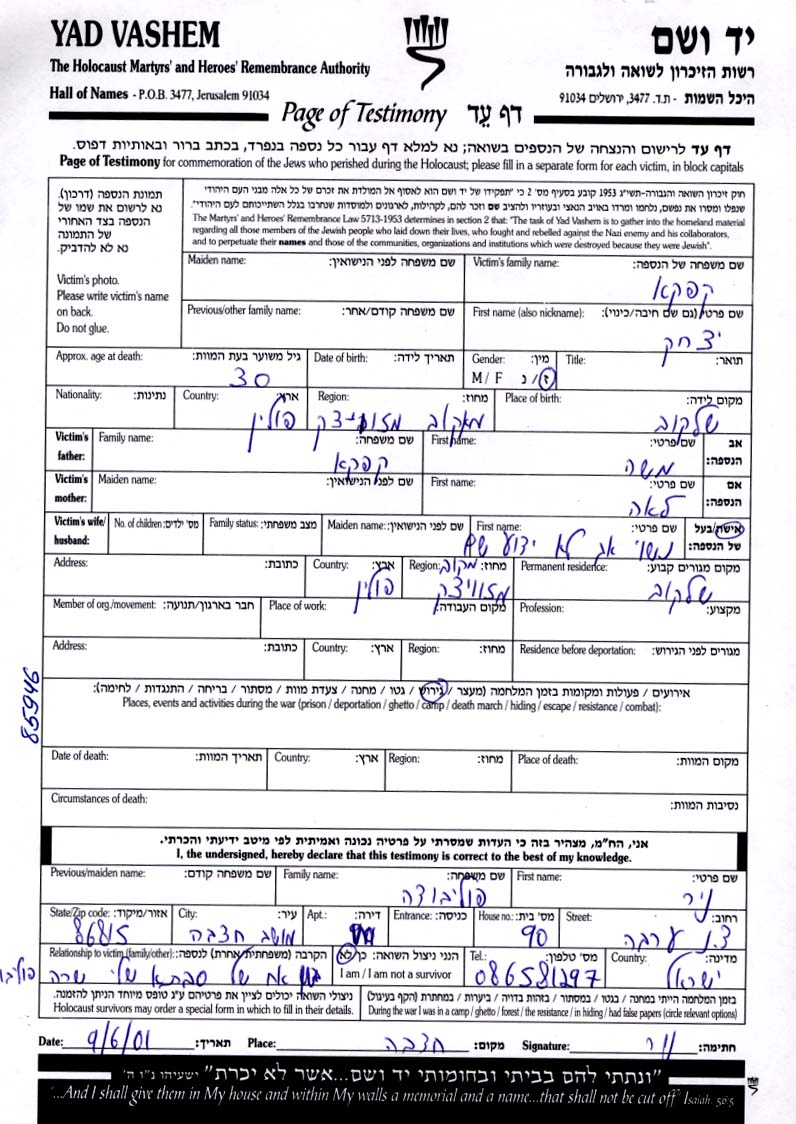 YAD VASHEM
יד ושם
The Holocaust Martyrs' and Heroes' Remembrance Authority
רשות הזיכרון לשואה ולגבורה
Hall of Names - P.O.B. 3477, Jerusalem 91034
היכל השמות - ת.ד. 3477, ירושלים 91034
Page of Testimony דף עֵד
דף עד לרישום והנצחה של הנספים בשואה; נא למלא דף עבור כל נספה בנפרד, בכתב ברור ובאותיות דפוס.
Page of Testimony for commemoration of the Jews who perished during the Holocaust; please fill in a separate form for each victim, in block capitals
תמונת הנספה (דרכון).
נא לרשום את שמו של
הנספה בצד האחורי
של התמונה
נא לא להדביק.
Victim's photo.
Please write victim's name
on back.
Do not glue.
חוק זיכרון השואה והגבורה-תשי״ג 1953 קובע בסעיף מס׳ 2 כי ״תפקידו של יד ושם הוא לאסוף אל המולדת את זכרם של כל אלה מבני העם היהודי
שנפלו ומסרו את נפשם, נלחמו ומרדו באויב הנאצי ובעוזריו ולהציב שם וזכר להם, לקהילות, לארגונים ולמוסדות שנחרבו בגלל השתייכותם לעם היהודי״.
The Martyrs' and Heroes' Remembrance Law 5713-1953 determines in section 2 that: "The task of Yad Vashem is to gather into the homeland material
regarding all those members of the Jewish people who laid down their lives, who fought and rebelled against the Nazi enemy and his collaborators,
and to perpetuate their names and those of the communities, organizations and institutions which were destroyed because they were Jewish".
Maiden name: שם משפחה לפני הנישואין:
Victim's family name: שם משפחה של הנספה:
קפקא
Previous/other family name: שם משפחה קודם/אחר:
First name (also nickname): שם פרטי (גם שם חיבה/כינוי):
יצחק
Approx. age at death: גיל משוער בעת המוות:
30
Date of birth: תאריך לידה:
Gender: מין:
M / F ז/נ
Title: תואר:
Nationality: נתינות:
Country: ארץ:
פולין
Region: מחוז:
מאקוב
Place of birth: מקום לידה:
שלקוב
Victim's father: אב הנספה:
Family name: שם משפחה:
קפקא
First name: שם פרטי:
משה
Victim's mother: אם הנספה:
Maiden name: שם לפני הנישואין:
First name: שם פרטי:
לאה
Victim's wife/ husband: אישה/בעל של הנספה:
No. of children: מס׳ ילדים:
Family status: מצב משפחתי:
Maiden name: שם לפני הנישואין:
First name: שם פרטי:
נשוי אך לא ידוע שם
Address: כתובת:
Country: ארץ:
פולין
Region: מחוז:
מקוב
Permanent residence: מקום מגורים קבוע:
שלקוב
Member of org./movement: חבר בארגון/תנועה:
Place of work: מקום העבודה:
Profession: מקצוע:
Address: כתובת:
Country: ארץ:
Region: מחוז:
Residence before deportation: מגורים לפני הגירוש:
85946
אירועים / פעולות ומקומות בזמן המלחמה (מעצר / גירוש / גטו / מחנה / צעדת מוות / מסתור / בריחה / התנגדות / לחימה):
Places, events and activities during the war (prison / deportation / ghetto / camp / death march / hiding / escape / resistance / combat):
Date of death: תאריך המוות:
Country: ארץ:
Region: מחוז:
Place of death: מקום המוות:
Circumstances of death: נסיבות המוות:
אני, הח״מ, מצהיר בזה כי העדות שמסרתי על פרטיה נכונה ואמיתית לפי מיטב ידיעתי והכרתי.
I, the undersigned, hereby declare that this testimony is correct to the best of my knowledge.
Previous/maiden name: שם משפחה קודם:
Family name: שם משפחה:
פוליבודה
First name: שם פרטי:
ניר
State/Zip code: אזור/מיקוד:
86815
City: עיר:
מושב חצבה
Apt.: דירה:
Entrance: כניסה:
House no.: מס׳ בית:
90
Street: רחוב:
ד.נ ערבה
Relationship to victim (family/other): הקרבה (משפחתית/אחרת) לנספה:
אח של סבתא שלי שרה
הנני ניצול השואה: כן/לא
I am / I am not a survivor
Tel.: מס׳ טלפון:
086581297
Country: מדינה:
ישראל
ניצולי השואה יכולים לציין את פרטיהם ע״ג טופס מיוחד הניתן להזמנה.
Holocaust survivors may order a special form in which to fill in their details.
בזמן המלחמה הייתי במחנה / בגטו / במסתור / בזהות בדויה / ביערות / במחתרת (הקף בעיגול)
During the war I was in a camp / ghetto / forest / the resistance / in hiding / had false papers (circle relevant options)
Date: 9/6/01 תאריך:
Place חצבה מקום:
Signature: ניר חתימה:
״ונתתי להם בביתי ובחומותי יד ושם...אשר לא יכרת״ ישעיהו נ״ו ה׳
"...And I shall give them in My house and within My walls a memorial and a name...that shall not be cut off" Isaiah. 56:5